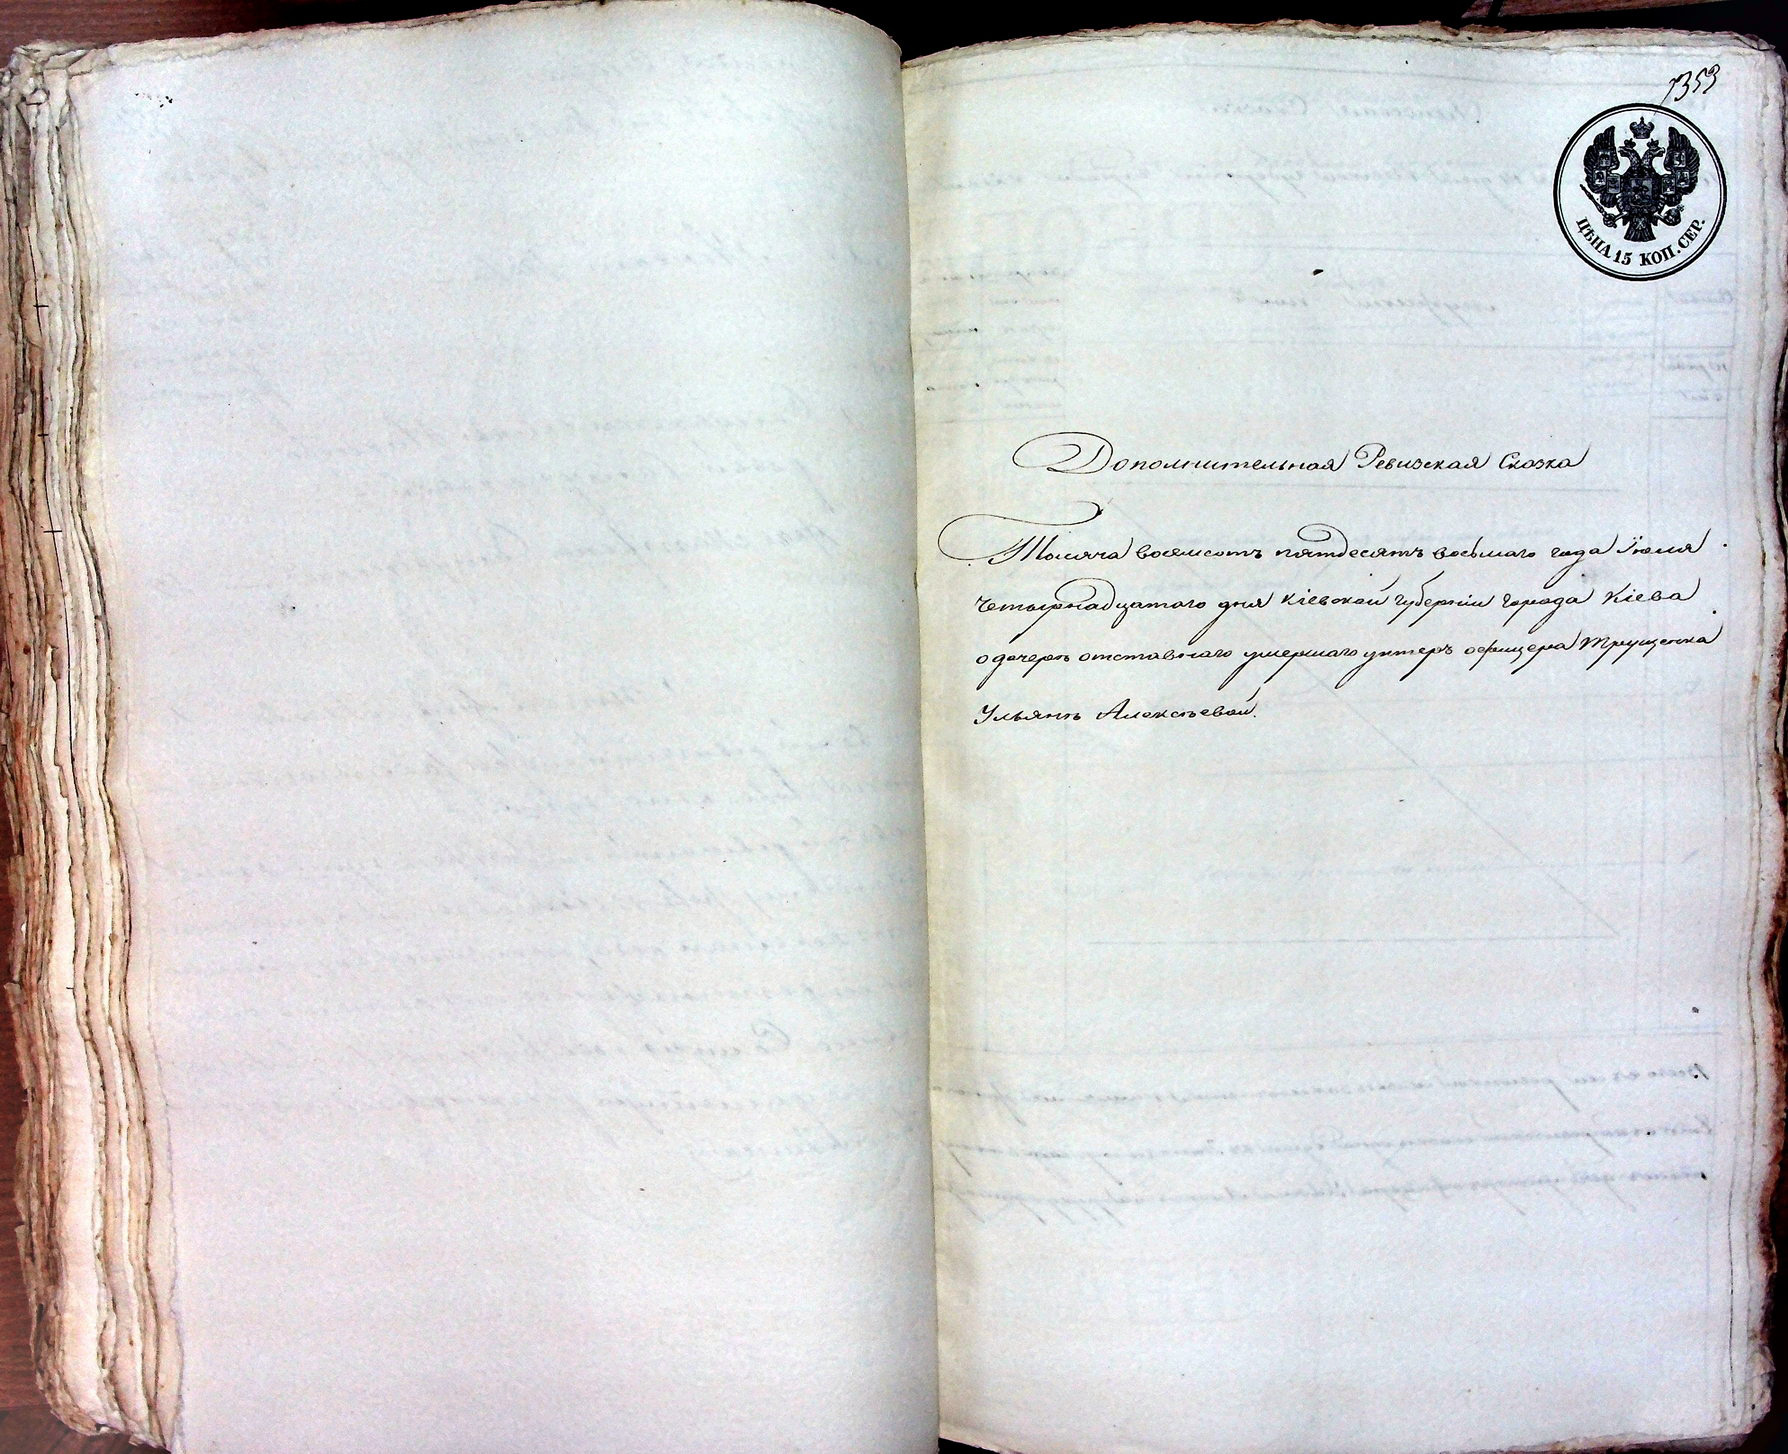 1353
ЦѢНА 15 КОП. СЕР.
Дополнительная Ревизская Сказка
Тысяча восемсотъ пятдесятъ восьмаго года Іюля
четырнадцатого дня Кіевской губерніи города Кіева
о дочерѣ отставнаго умершаго унтеръ офицера Трущенка
Ульянѣ Алексѣевой.